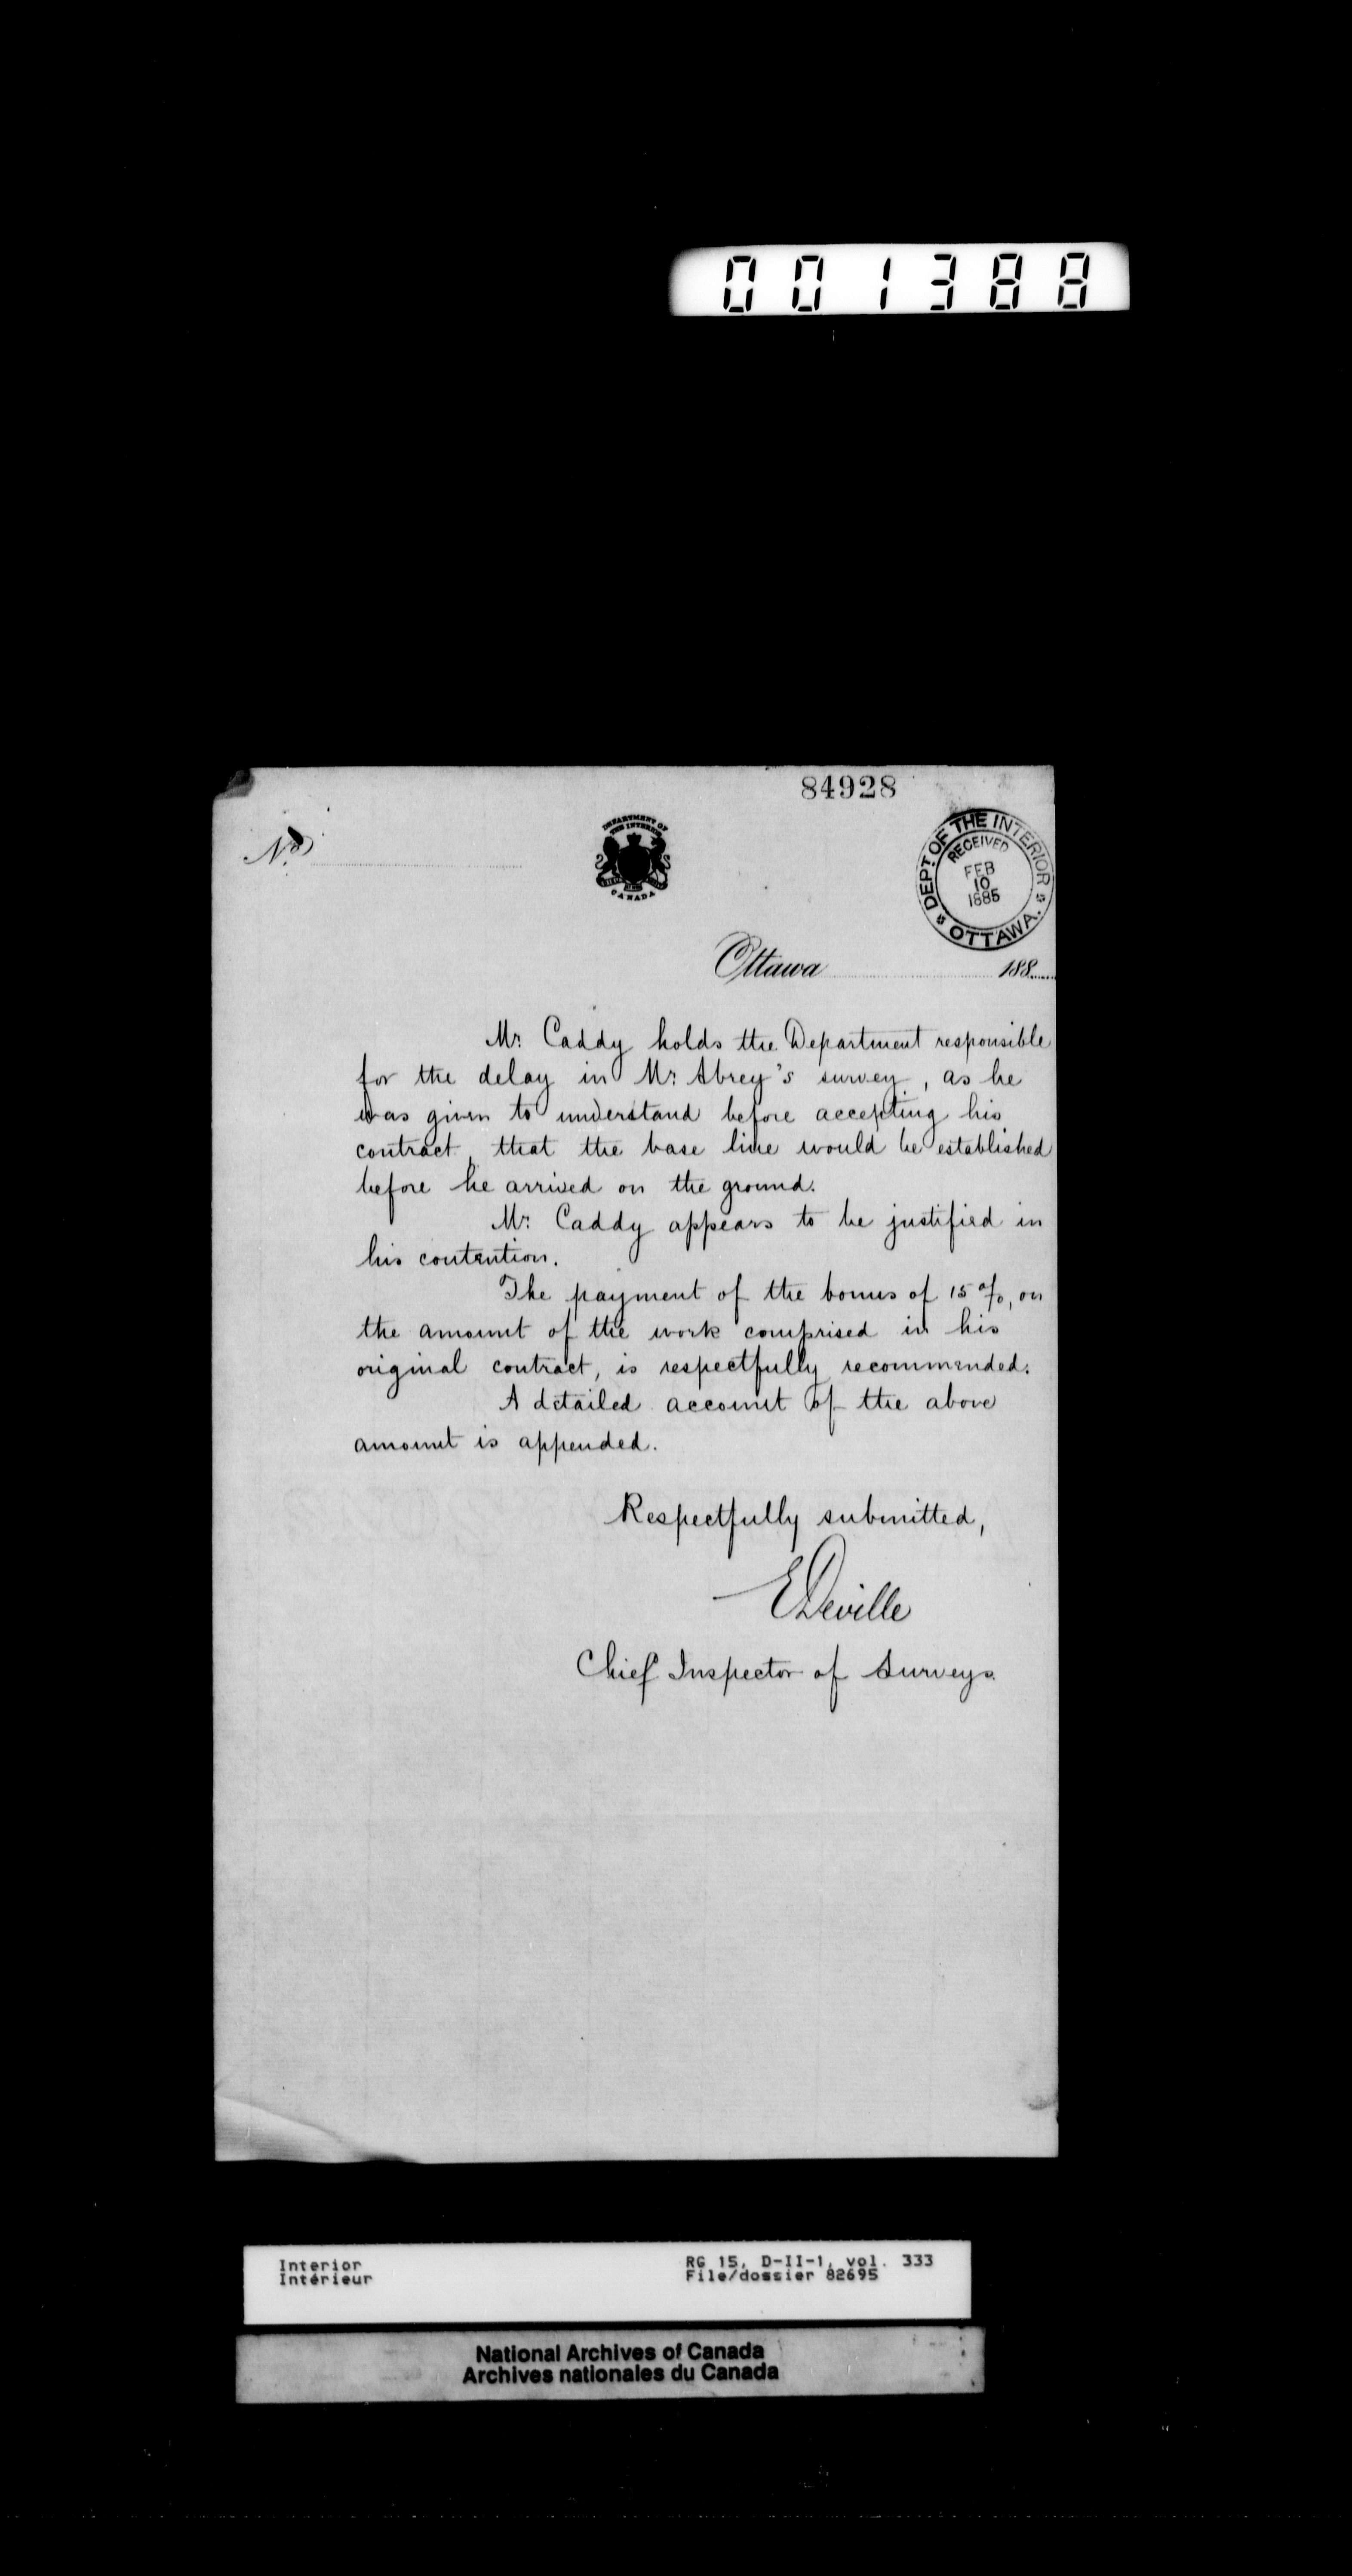 001388
84928
No
DEPARTMENT OF
THE INTERIOR
CANADA
DEPT. OF THE INTERIOR
RECEIVED
FEB
10
1885
OTTAWA.
Ottawa 188
Mr. Caddy holds the Department responsible
for the delay in Mr. Abrey's survey, as he
was given to understand before accepting his
contract, that the base line would be established
before he arrived on the ground.
Mr. Caddy appears to be justified in
his contention.
The payment of the bonus of 15%, on
the amount of the work comprised in his
original contract, is respectfully recommended.
A detailed account of the above
amount is appended.
Respectfully submitted,
E Deville
Chief Inspector of Surveys.
Interior RG 15, D-II-1, vol. 333
Intérieur File/dossier 82695
National Archives of Canada
Archives nationales du Canada